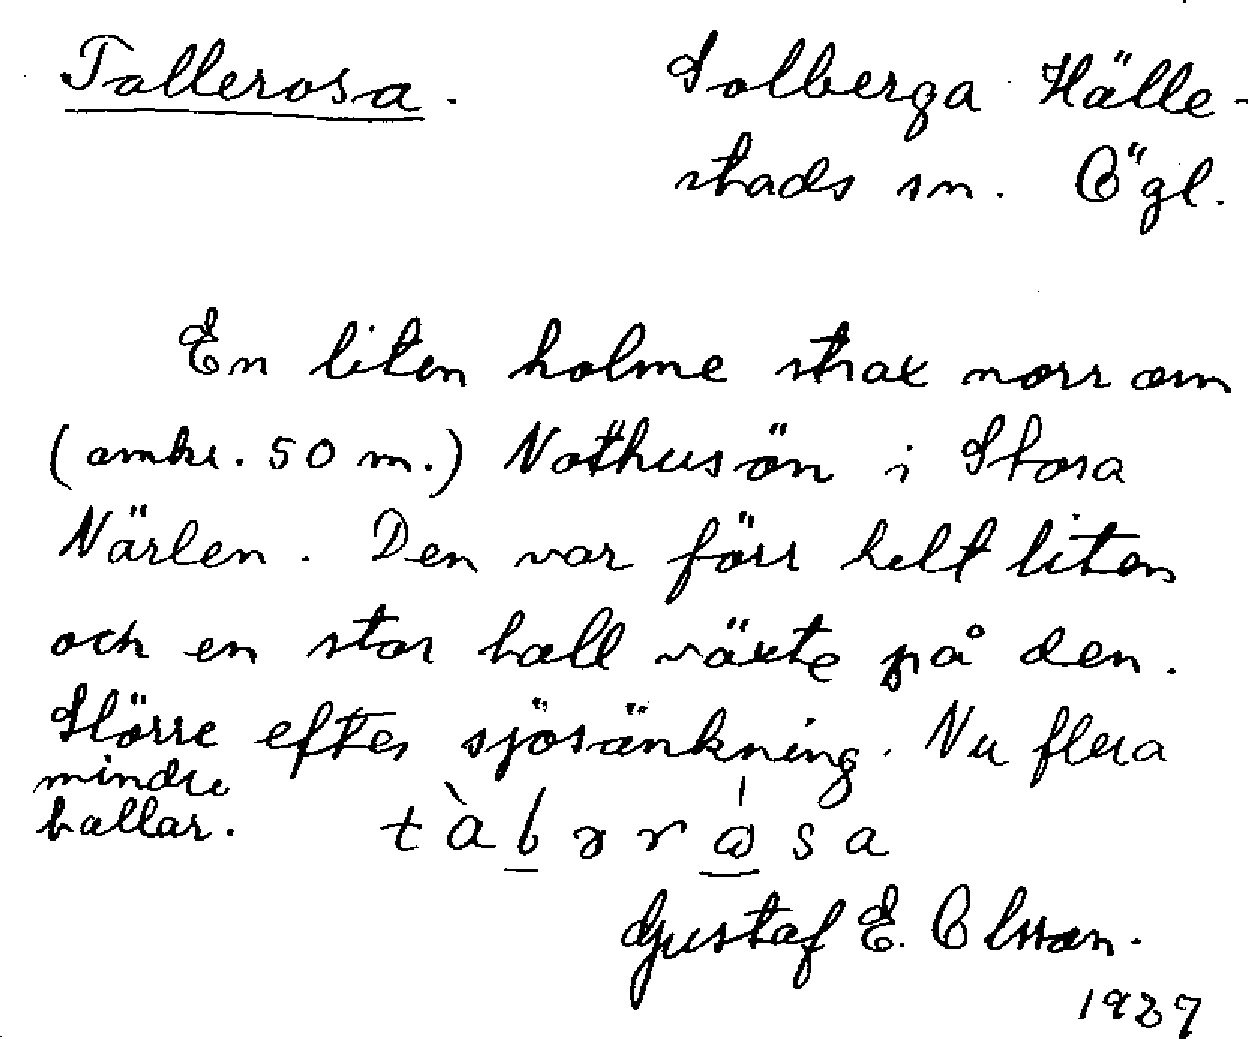 Tallerosa. Solberga Hälle-
stads sn. Ögl.
En liten holme strax norr om
(omkr. 50 m.) Nöthusön i Stora
Närlen. Den var förr helt liten
och en stor tall växte på den.
Större efter sjösänkning. Nu flera
mindre
tallar.
Gustaf E. Olsson.
1937